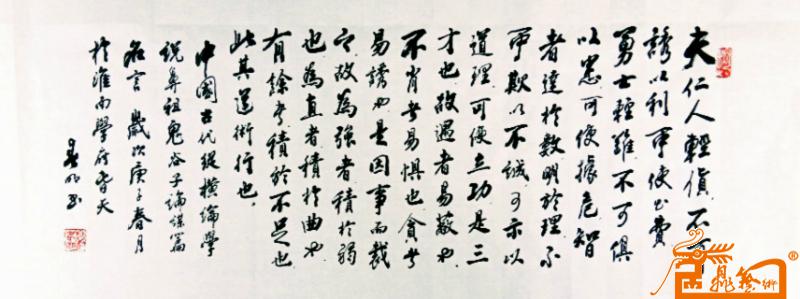 夫仁人輕貨不可
誘以利可使出費
勇士輕難不可俱
以患可使據危智
者達於數明於理不
可欺以不誠可示以
道理可使立功是三
才也故愚者易蔽也
不肖者易惧也貪者
易誘也是因事而裁
之故為強者積於弱
也為直者積於曲也
有餘者積於不足也
此其道術行也
中國古代縱橫論學
説鼻祖鬼谷子論謀篇
名言 歲次庚子春月
於淮南學府春天